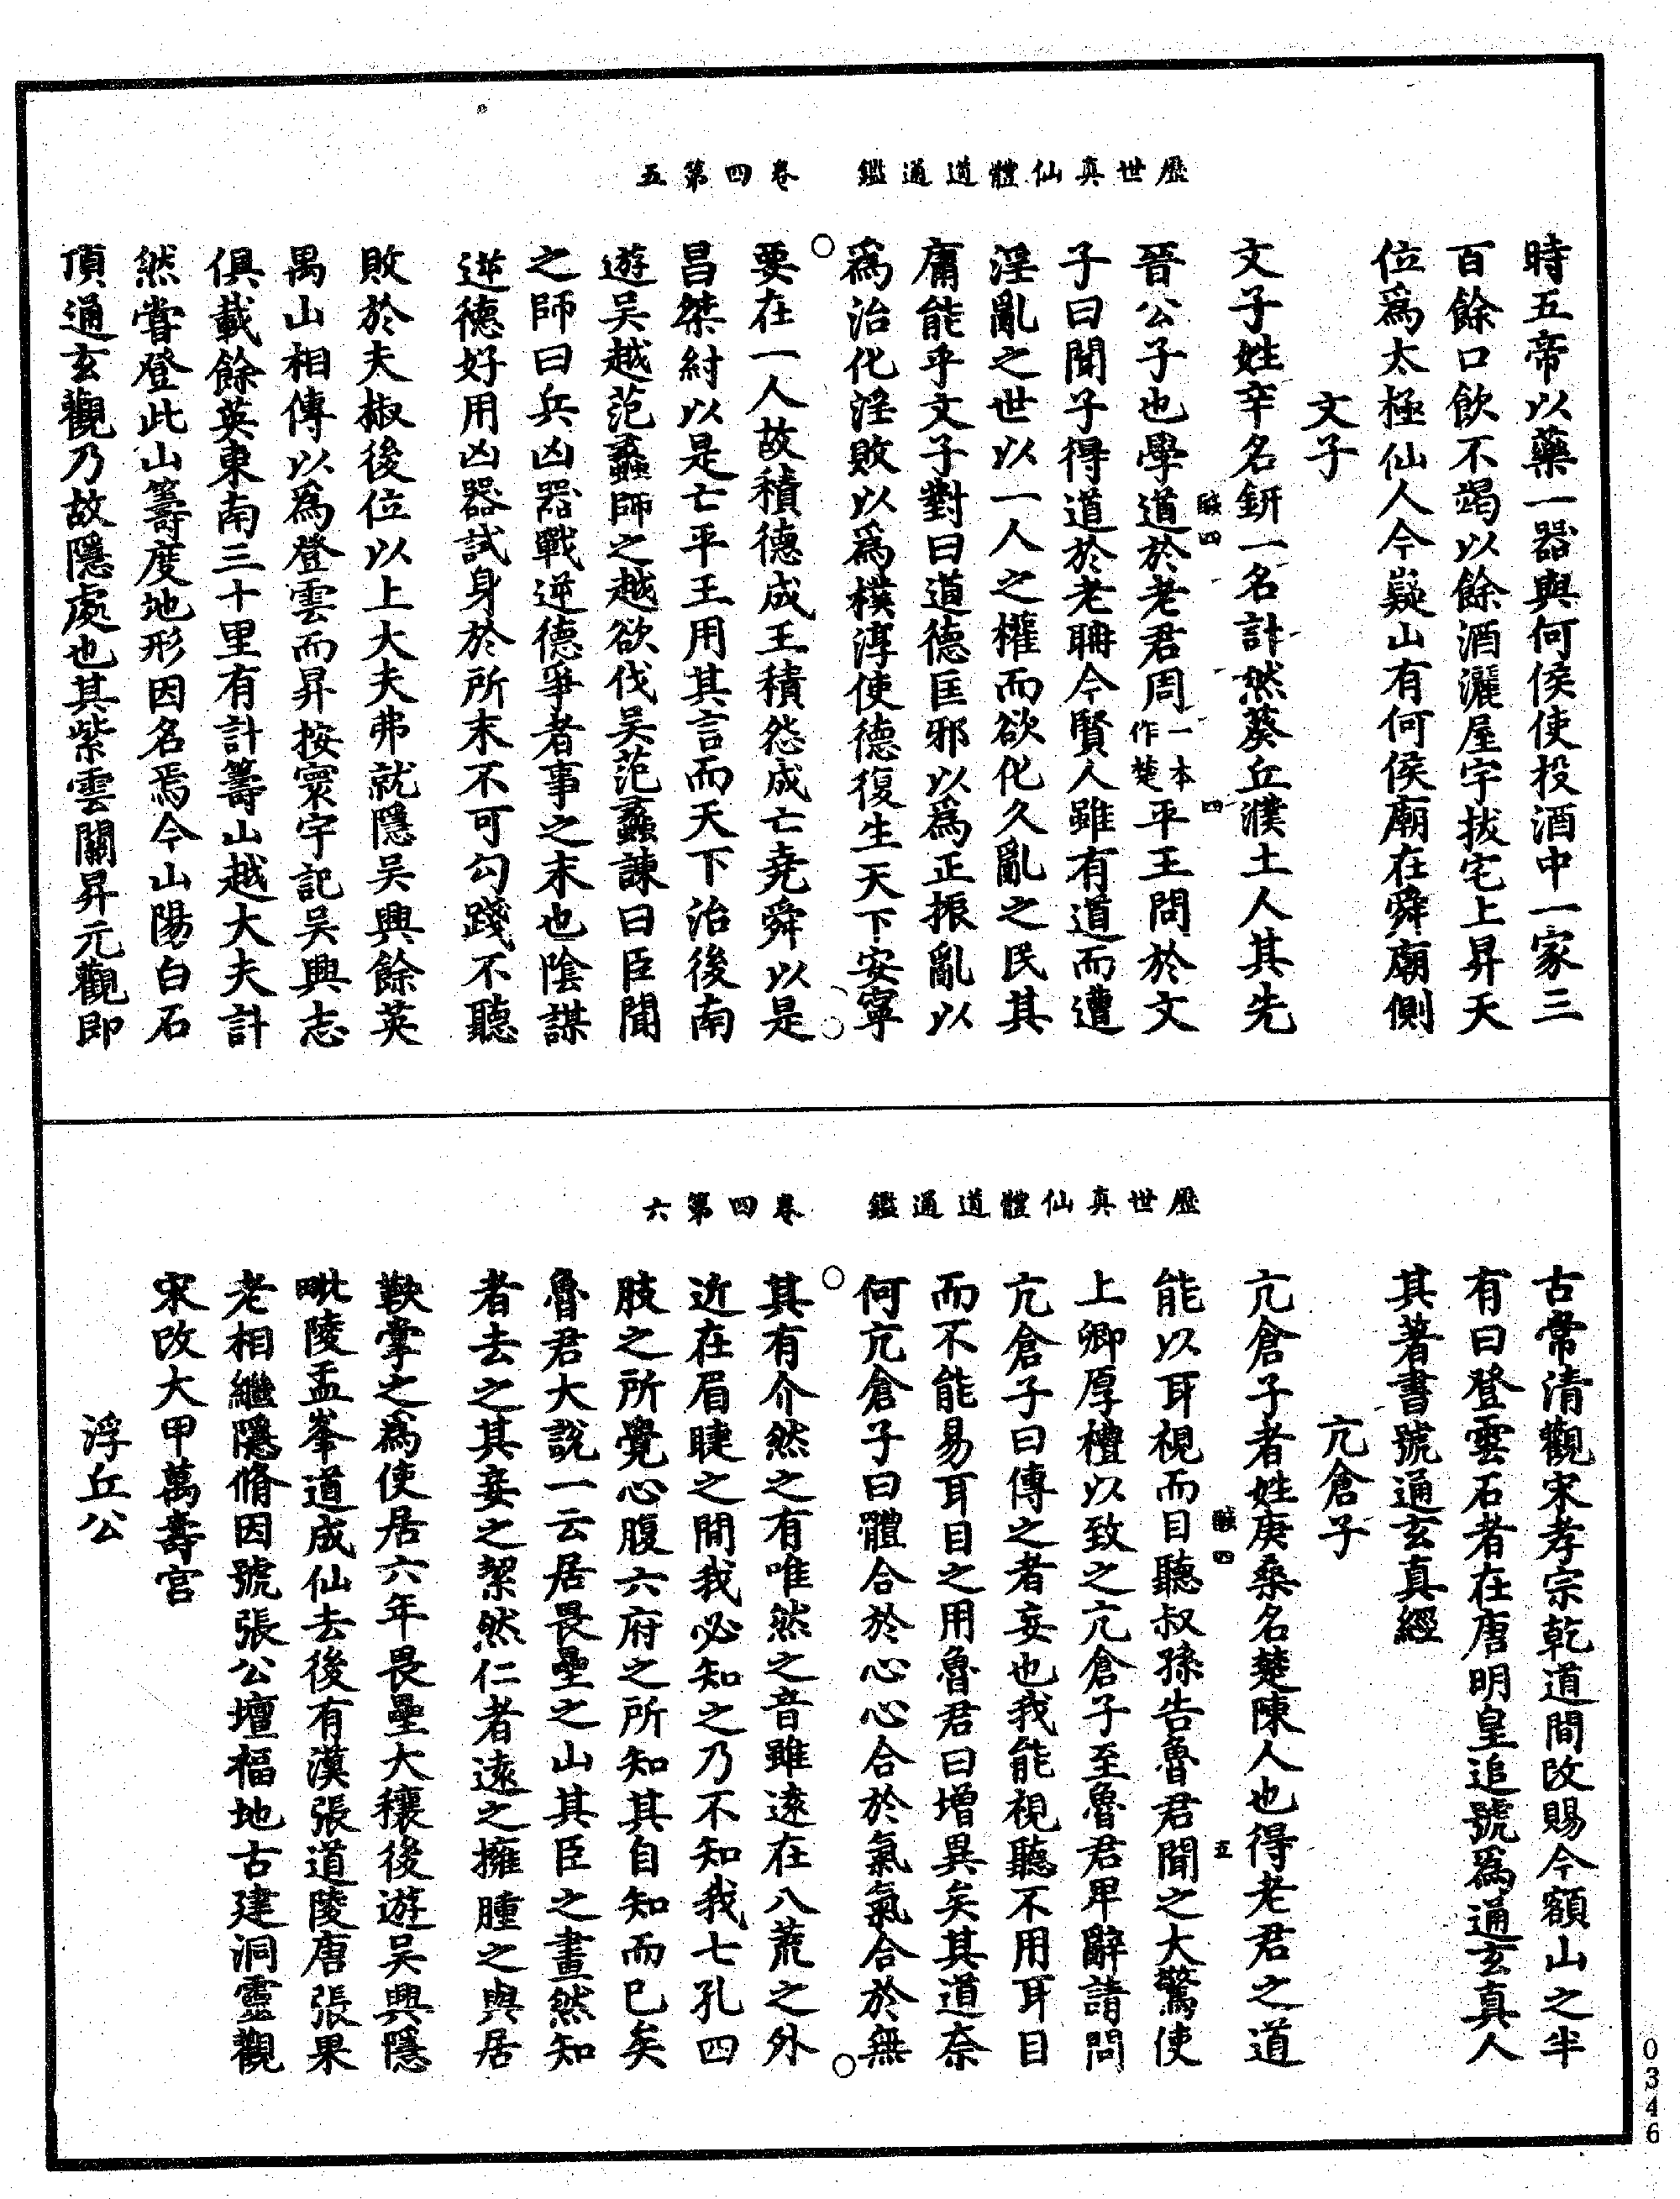 歷世真仙體道通鑑　卷四第五
時五帝以藥一器與何侯使投酒中一家三
百餘口飲不竭以餘酒灑屋宇拔宅上昇天
位爲太極仙人今嶷山有何侯廟在舜廟側
文子
文子姓辛名鈃一名計然葵丘濮土人其先
晉公子也學道於老君周一本作楚平王問於文
子曰聞子得道於老聃今賢人雖有道而遭
淫亂之世以一人之權而欲化久亂之民其
庸能乎文子對曰道德匡邪以爲正振亂以
爲治化淫敗以爲樸淳使德復生天下安寧
要在一人故積德成王積怨成亡堯舜以是
昌桀紂以是亡平王用其言而天下治後南
遊吳越范蠡師之越欲伐吳范蠡諫曰臣聞
之師曰兵凶器戰逆德爭者事之末也陰謀
逆德好用凶器試身於所末不可勾踐不聽
敗於夫椒後位以上大夫弗就隱吳興餘英
禺山相傳以爲登雲而昇按寰宇記吳興志
俱載餘英東南三十里有計籌山越大夫計
然嘗登此山籌度地形因名焉今山陽白石
頂通玄觀乃故隱處也其紫雲關昇元觀即
歷世真仙體道通鑑　卷四第六
古常清觀宋孝宗乾道間改賜今額山之半
有曰登雲石者在唐明皇追號爲通玄真人
其著書號通玄真經
亢倉子
亢倉子者姓庚桑名楚陳人也得老君之道
能以耳視而目聽叔孫告魯君聞之大驚使
上卿厚禮以致之亢倉子至魯君卑辭請問
亢倉子曰傳之者妄也我能視聽不用耳目
而不能易耳目之用魯君曰增異矣其道奈
何亢倉子曰體合於心心合於氣氣合於無
其有介然之有唯然之音雖遠在八荒之外
近在眉睫之間我必知之乃不知我七孔四
肢之所覺心腹六府之所知其自知而已矣
魯君大說一云居畏壘之山其臣之畫然知
者去之其妾之絜然仁者遠之擁腫之與居
鞅掌之爲使居六年畏壘大穰後遊吳興隱
毗陵孟峯道成仙去後有漢張道陵唐張果
老相繼隱脩因號張公壇福地古建洞靈觀
宋改大甲萬壽宮
浮丘公
0346